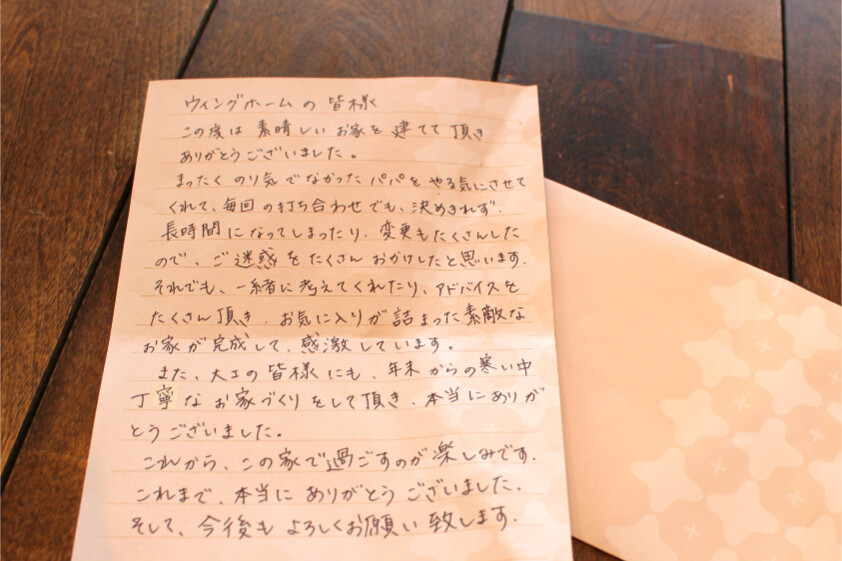 ウィングホームの皆様
この度は素晴しいお家を建てて頂き
ありがとうございました。
まったくのり気でなかったパパをやる気にさせて
くれて、毎回の打ち合わせでも、決めきれず、
長時間になってしまったり、変更もたくさんした
ので、ご迷惑をたくさんおかけしたと思います。
それでも、一緒に考えてくれたり、アドバイスを
たくさん頂き、お気に入りが詰まった素敵な
お家が完成して、感激しています。
また、大工の皆様にも、年末からの寒い中
丁寧なお家づくりをして頂き、本当にありが
とうございました。
これから、この家で過ごすのが楽しみです。
これまで、本当にありがとうございました。
そして、今後もよろしくお願い致します。